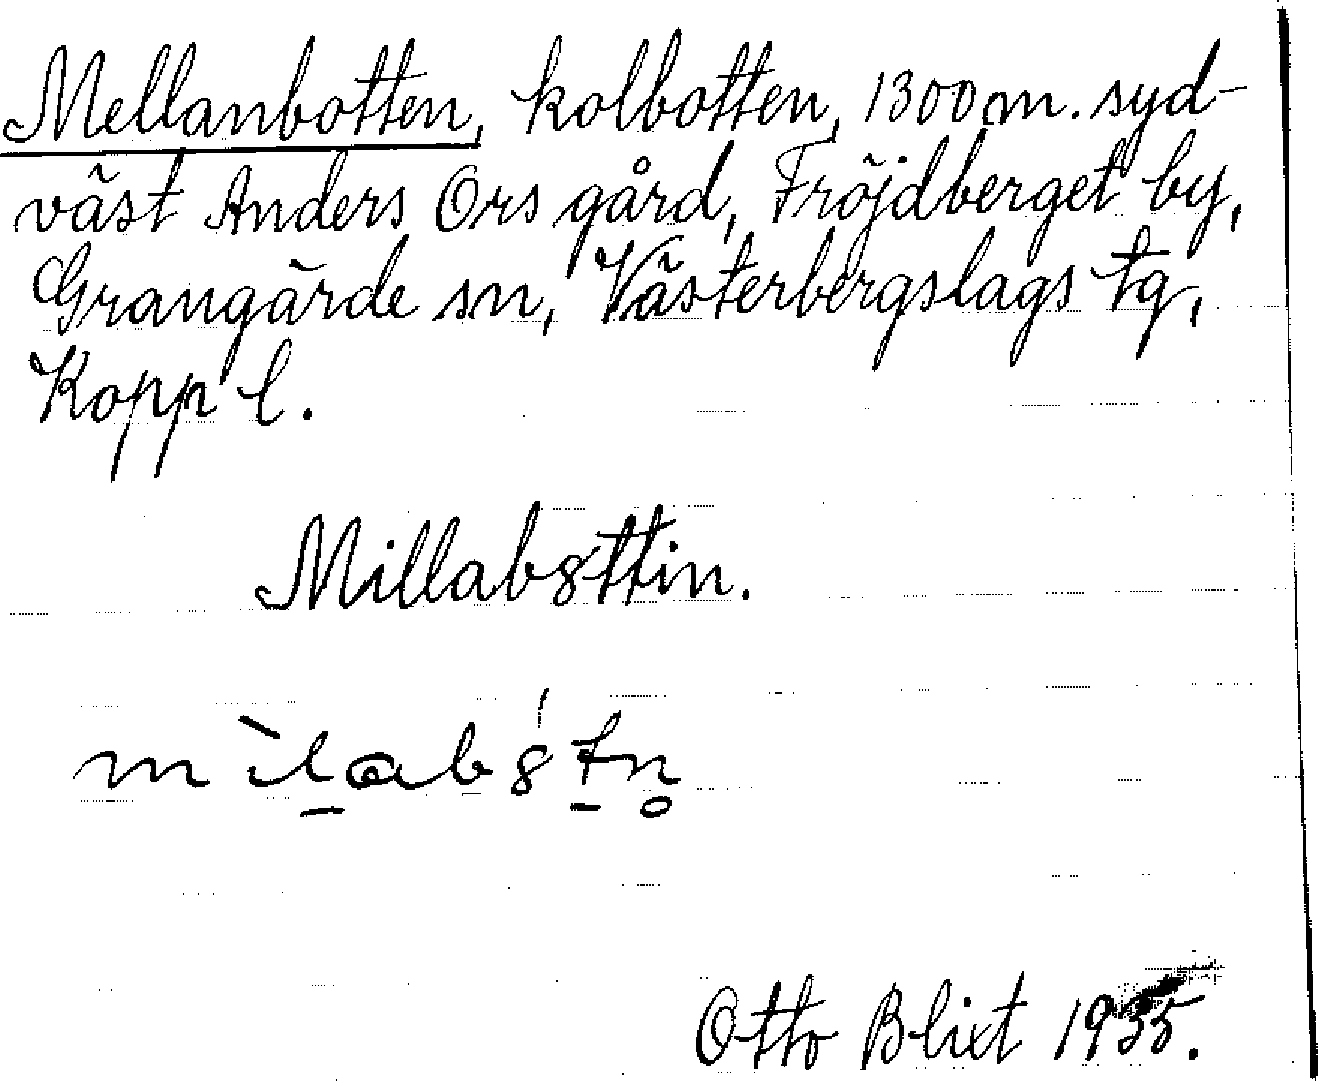 Mellanbotten, kolbotten, 1300 m. syd-
väst Anders Ors gård, Fröjdberget by,
Grangärde sn, Västerbergslags tg,
Kopp l.
Millab8ttin.
Otto Blixt 1935.